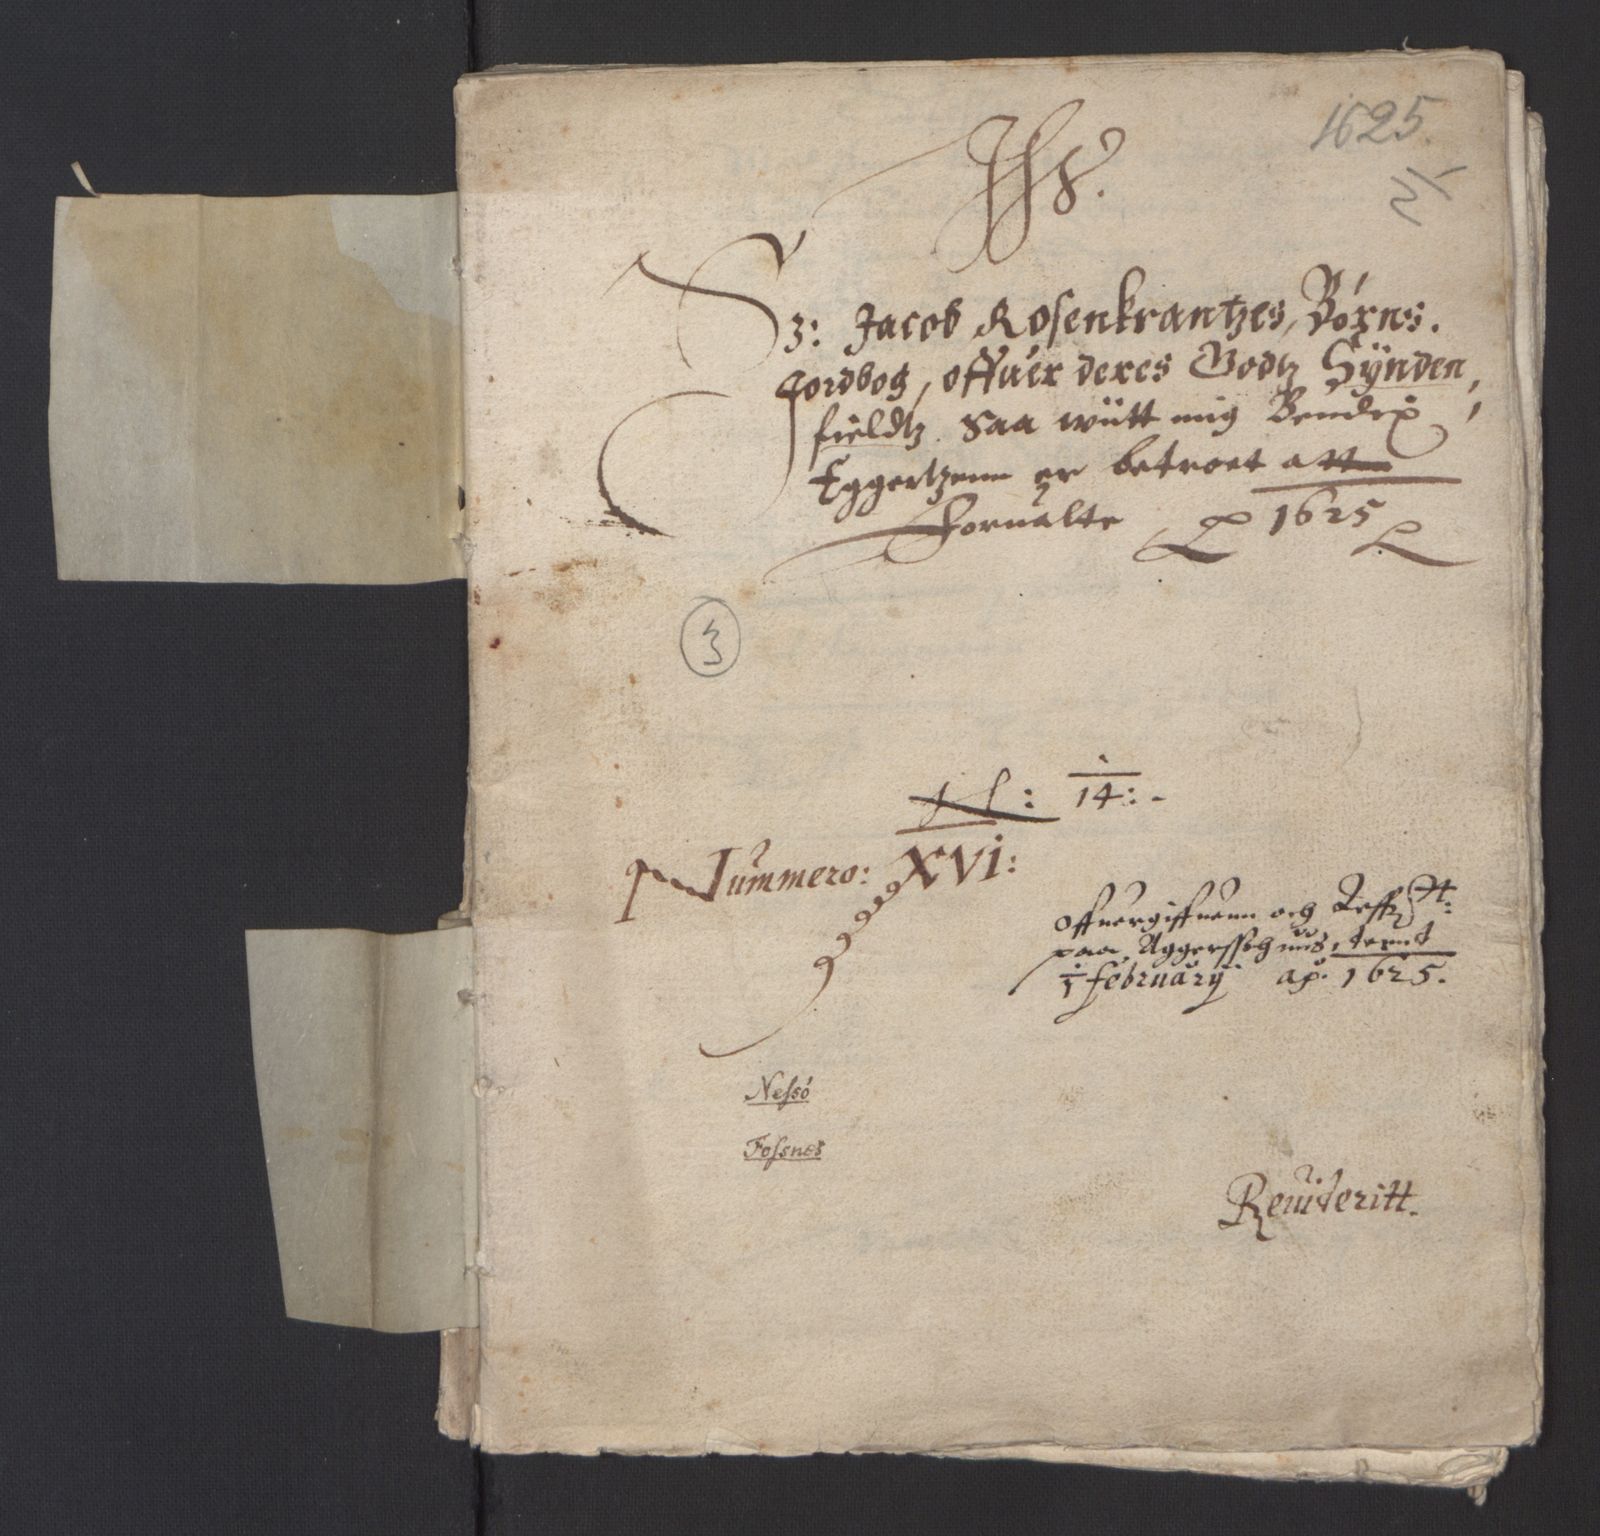 1625.
Jhs.
S: Jacob Rosenkrantzes, Börns.
Jordbog, offuer deres Godtz Synden,
fieldtz. Saa wiitt mig Bendix
Eggertzenn er betroet att
Forualte 1625
3
14:-
Nummero: XVI:
Offuergiffuenn och Leffr:
paa, Aggersshuus,
1 February aō. 1625.
Nessö
Fossnes
Reuideritt.